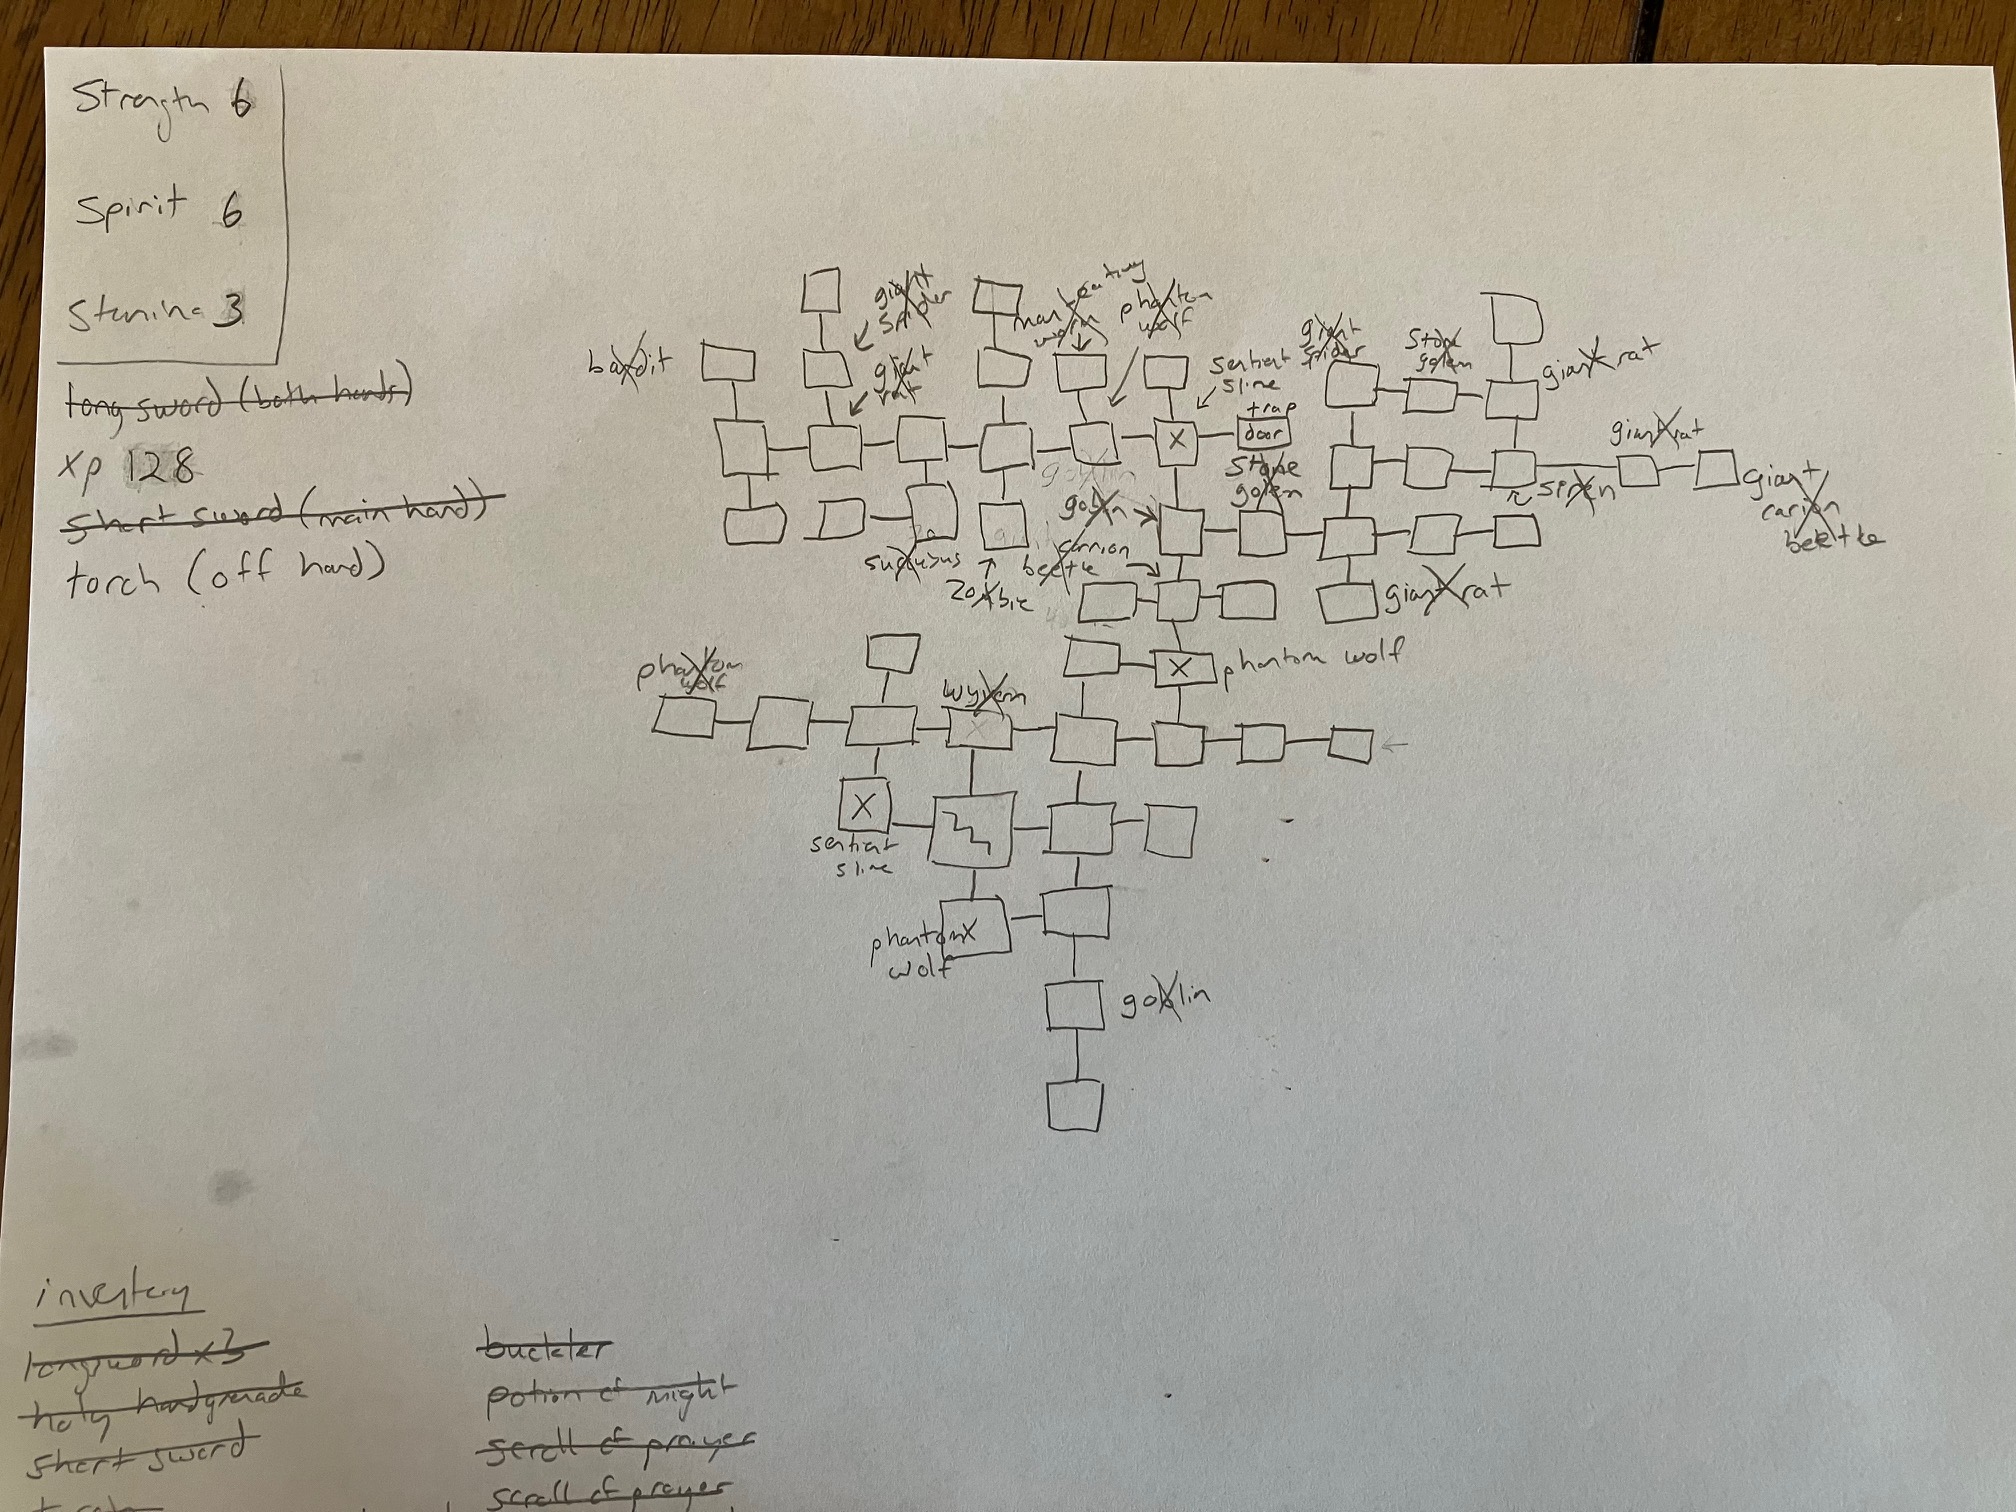 Strength 6
Spirit 6
Stamina 3
long sword (both hands)
xp 128
short sword (main hand)
torch (off hand)
bandit
giant
spider
giant
rat
man eating
worm
phantom
wolf
sentient
slime
trap
door
stone
golem
goblin
goblin
carrion
beetle
succubus
zombie
giant
spider
stone
golem
giant rat
giant rat
siren
giant
carion
beetle
giant rat
phantom wolf
phantom
wolf
wyvern
X
X
X
sentient
slime
phantom X
wolf
goblin
inventory
longsword x3
holy handgrenade
short sword
buckler
potion of might
scroll of prayer
scroll of prayer